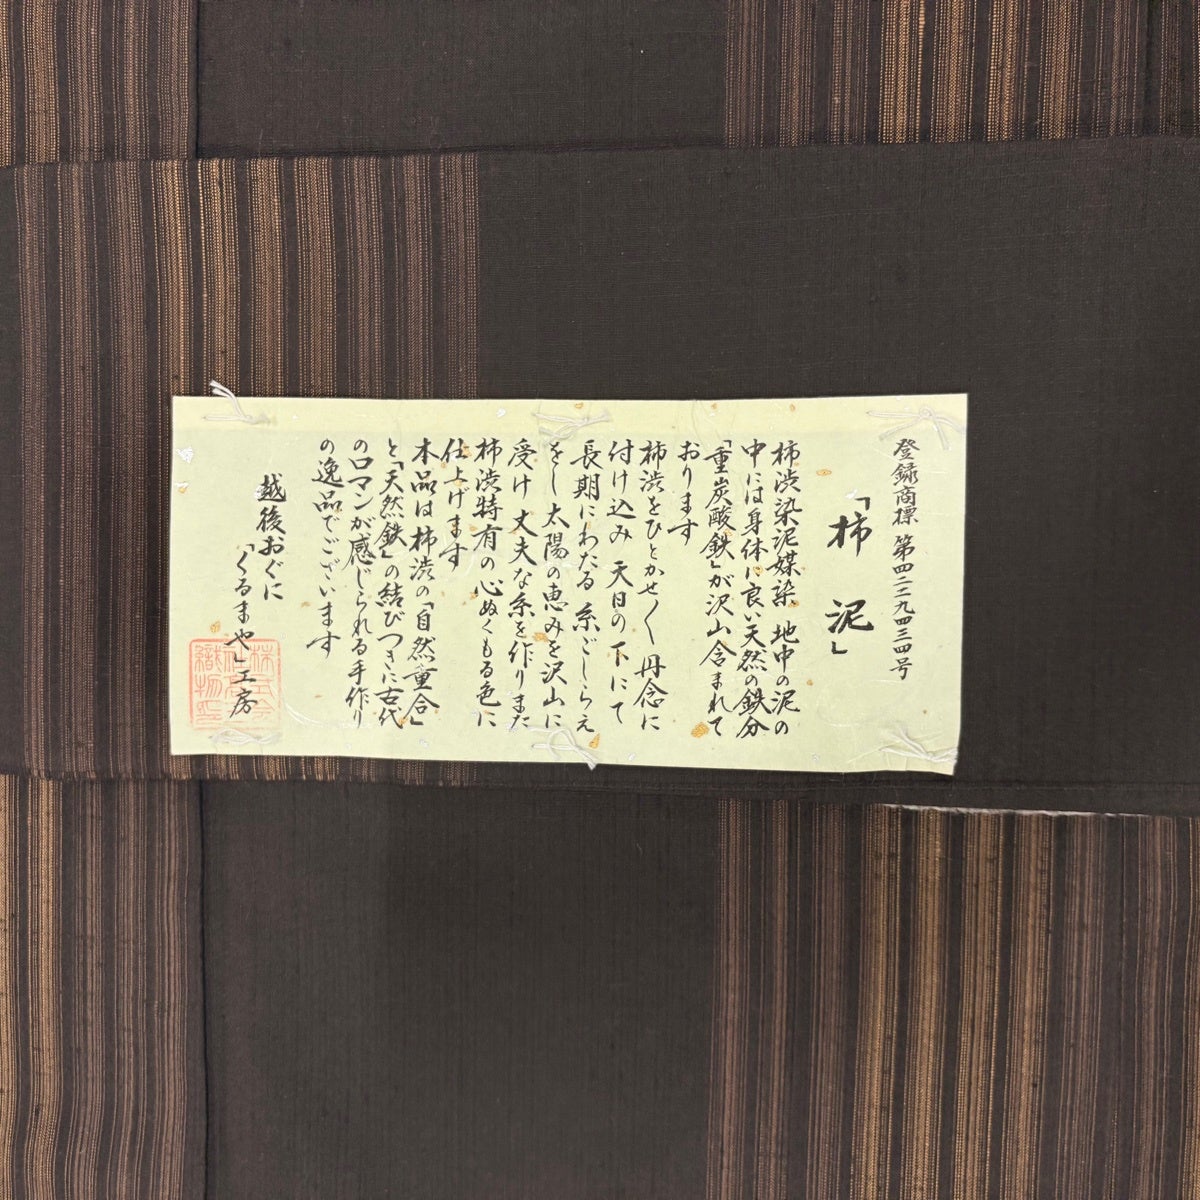 登録商標 第四二二九四三四号
「柿 泥」
柿渋染泥媒染 地中の泥の
中には身体に良い天然の鉄分
「重炭酸鉄」が沢山含まれて
おります
柿渋をひとかせ〱丹念に
付け込み 天日の下にて
長期にわたる糸ごしらえ
をし太陽の恵みを沢山に
受け 丈夫な糸を作りまた
柿渋特有の心ぬくもる色に
仕上げます
本品は柿渋の「自然重合」
と「天然鉄」の結びつきに古代
のロマンが感じられる手作り
の逸品でございます
越後おぐに
「くるまや」工房
株式会
織物